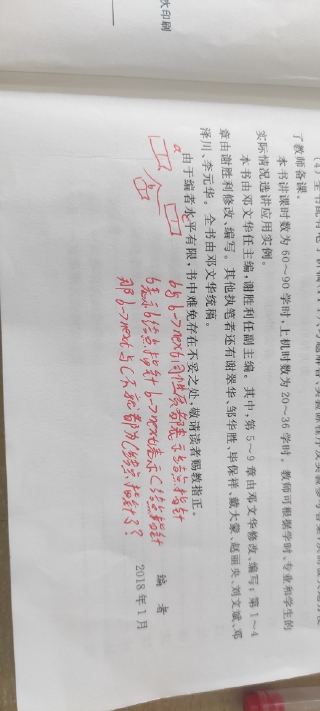 次印刷
了教师备课。
本书讲课时数为 60～90 学时,上机时数为 20～36 学时。教师可根据学时、专业和学生的
实际情况选讲应用实例。
本书由邓文华任主编,谢胜利任副主编。其中,第 5～9 章由邓文华修改、编写;第 1～4
章由谢胜利修改、编写。其他执笔者还有谢翠华、邹华胜、毕保祥、戴大蒙、赵丽央、刘文斌、邓
泽川、李元华。全书由邓文华统稿。
由于编者水平有限,书中难免存在不妥之处,敬请读者赐教指正。
编 者
2018 年 1 月
a
b c
b与b->next同性质都表示结点指针
b表示b结点指针 b->next表示C结点指针
那b->next与C不就都为C结点指针了?